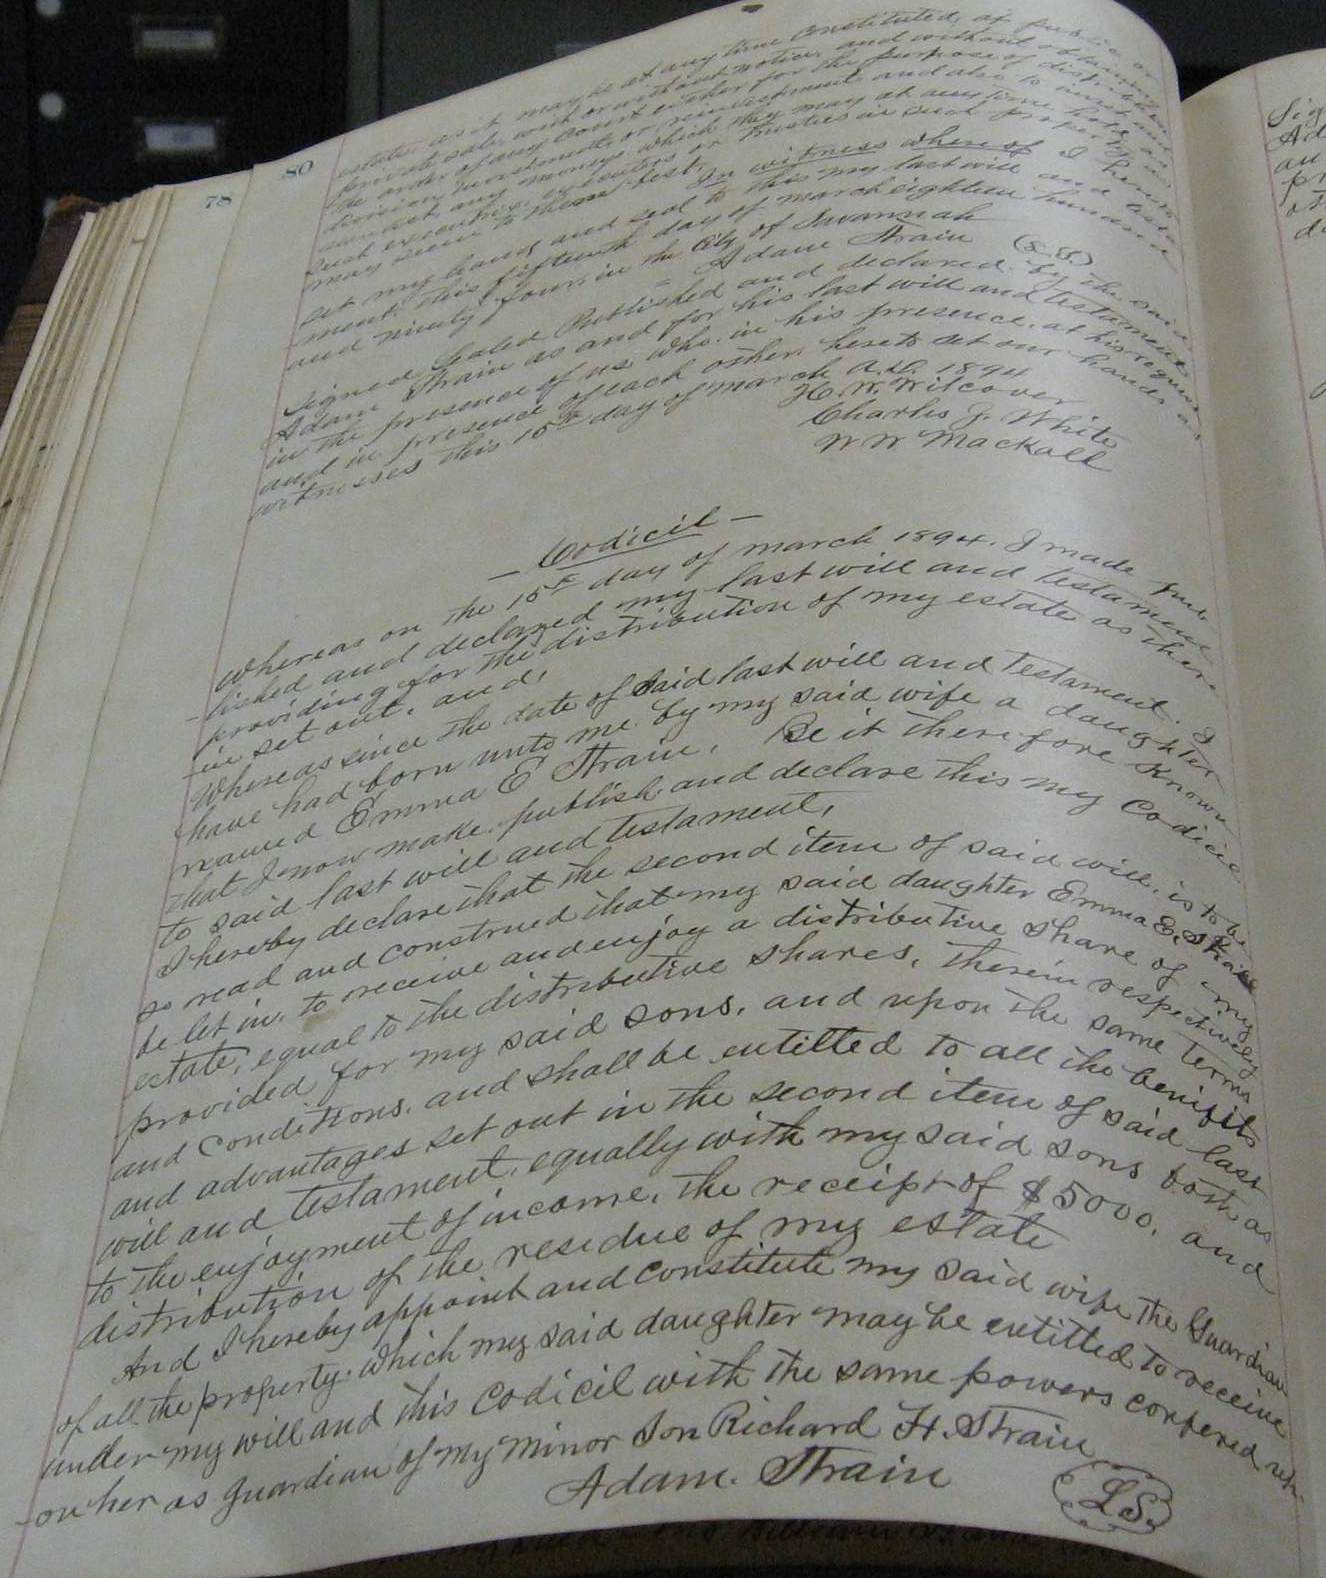 80
78
estate as it may be at any time constituted, at public or
private sale, with or without notice, and without obtaining
the order of any Court either for the purpose of distribution
division, investment, or reinvestment and also to invest and
reinvest any moneys which they may at any time have as
such executrix, executors or Trustees in such property as
may seem to them best. In witness where of I hereunto
set my hand and seal to this my last will and testa
ment this fifteenth day of march eighteen hundred
and ninety four, in the City of Savannah
Adam Strain (L.S.)
Signed Sealed Published and declared, by the said
Adam Strain as and for his last will and testament
in the presence of us who, in his presence, at his request
and in presence of each other, hereto set our hands as
witnesses this 15th day of march A.D. 1894
H. W. Wilcover
Charles J. White
W W Mackall
- Codicil -
Whereas on the 15th day of march 1894. I made pub
lished and declared my last will and testament
providing for the distribution of my estate as there
in set out, and,
Whereas since the date of said last will and testament. I
have had born unto me by my said wife a daughter
named Emma E Strain. Be it therefore Known
that I now make, publish and declare this my Codicil
to said last will and testament,
I hereby declare that the second item of said will, is to be
so read and construed that my said daughter Emma E. Strain
be let in, to receive and enjoy a distributive share of my
estate, equal to the distributive shares, therein respectively
provided for my said sons, and upon the same terms
and conditions, and shall be entitled to all the benifits
and advantages set out in the second item of said last
will and testament, equally with my said sons both as
to the enjoyment of income, the receipt of $5000, and
distribution of the residue of my estate
And I hereby appoint and constitute my said wife the Guardian
of all the property which my said daughter may be entitled to receive
under my will and this Codicil with the same powers confered up-
-on her as guardian of My Minor Son Richard H. Strain
Adam. Strain LS